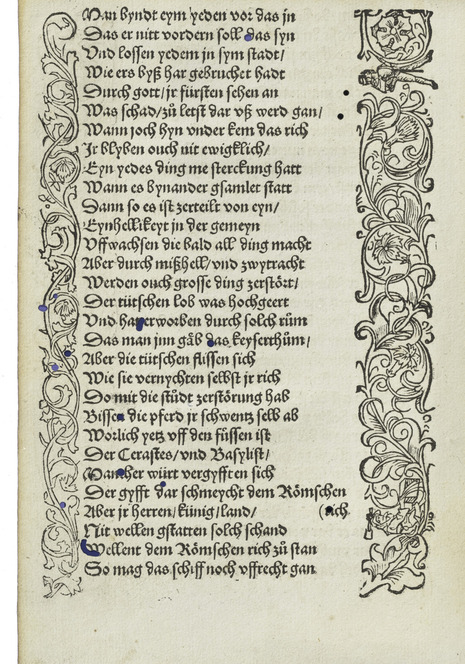 Man byndt eym yeden vor das jn
Das er nitt vordern soll das syn
Vnd lossen yedem in sym stadt/
Wie ers byß har gebruchet hadt
Durch gott/jr fürsten sehen an
Was schad/zů letst dar vß werd gan/
Wann joch hyn vnder kem das rich
Ir blyben ouch nit ewigklich/
Eyn yedes ding me sterckung hatt
Wann es bynander gsamlet statt
Dann so es ist zerteilt von eyn/
Eynhellikeyt jn der gemeyn
Vffwachsen die bald all ding macht
Aber durch mißhell/vnd zwytracht
Werden ouch grosse ding zerstört/
Der tütschen lob was hochgeert
Vnd hat erworben durch solch rům
Das man jnn gäb das keyserthům/
Aber die tütschen flissen sich
Wie sie vernychten selbst jr rich
Do mit die stůdt zerstörung hab
Bissen die pferd jr schwentz selb ab
Worlich yetz vff den füssen ist
Der Cerastes/vnd Basylist/
Mancher würt vergyfften sich
Der gyfft dar schmeycht dem Römschen
Aber jr herren/künig/land/ (rich.
Nit wellen gstatten solch schand
Wellent dem Römschen rich zů stan
So mag das schiff noch vffrecht gan